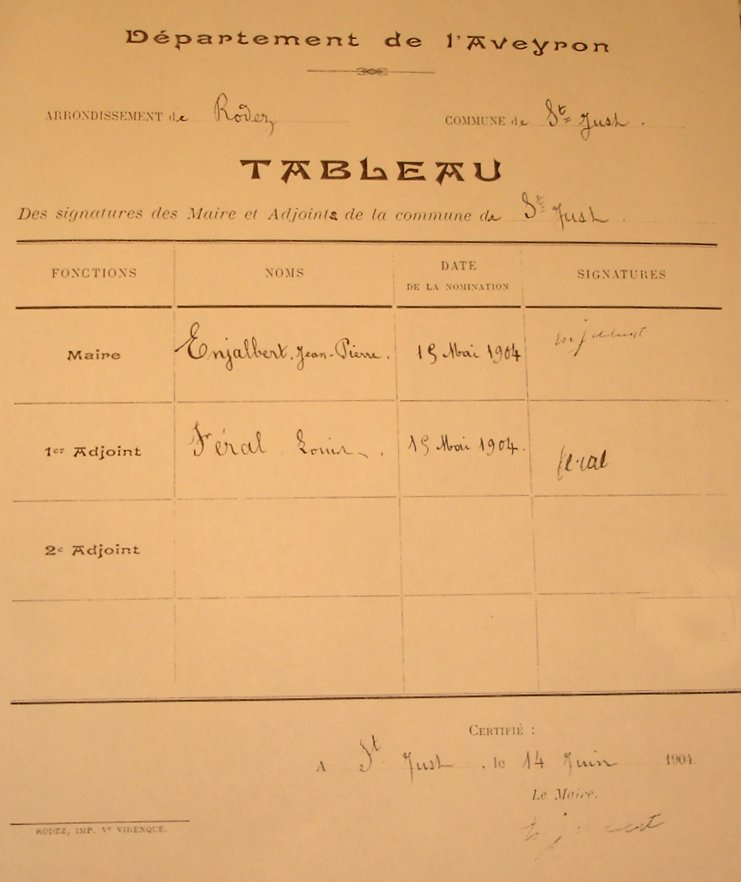 Département de l'Aveyron
ARRONDISSEMENT de Rodez COMMUNE de St Just.
TABLEAU
Des signatures des Maire et Adjoints de la commune de St Just.
FONCTIONS NOMS DATE DE LA NOMINATION SIGNATURES
Maire Enjalbert, Jean-Pierre. 15 Mai 1904 Enjalbert
1er Adjoint Féral Louis. 15 Mai 1904. feral
2e Adjoint
CERTIFIÉ :
A St Just, le 14 Juin 1904.
Le Maire.
Enjalbert
RODEZ, IMP. Ve VIRENQUE.